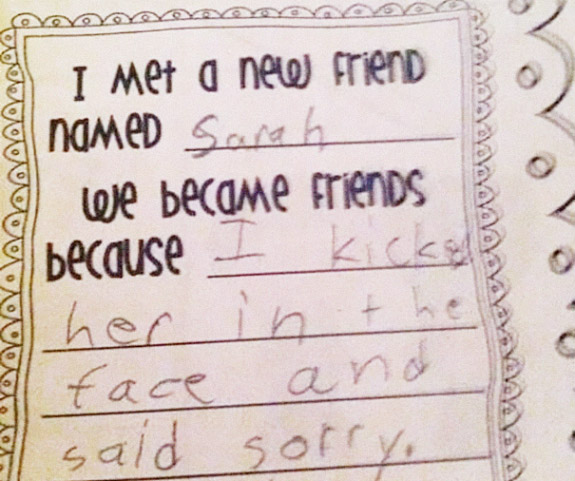 I met a new friend
named Sarah
We became friends
because I kicked
her in the
face and
said sorry.